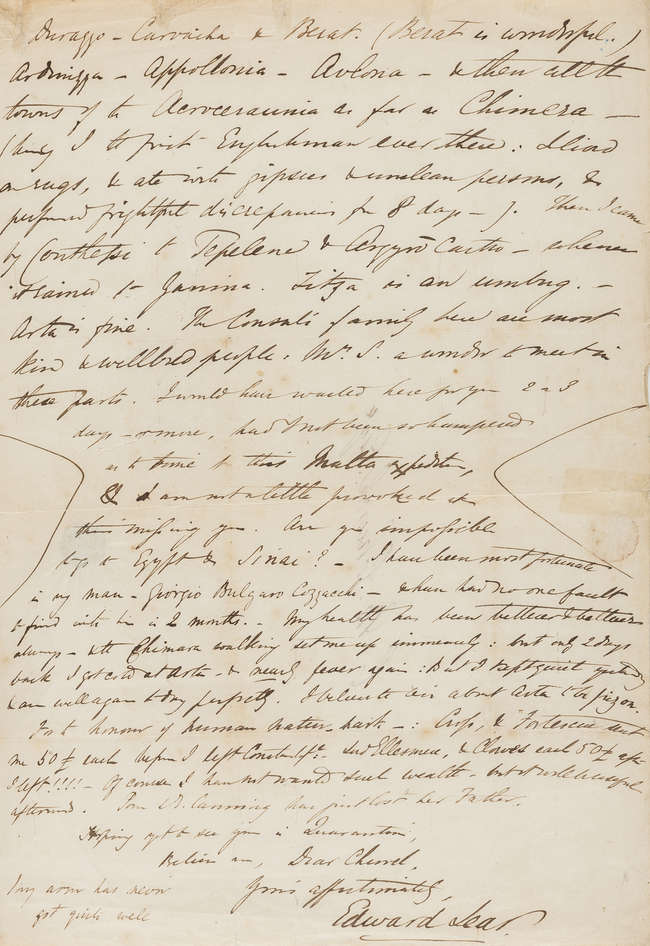 Durazzo - Cavaicha & Berat. (Berat is wonderful.)
Ardenizza - Appollonia - Avlona - & then all the
towns of the Acroceraunia as far as Chimæra -
(being I the first Englishman ever there: I lived
on rugs, & ate with gipsies & unclean persons, &
performed frightful discrepancies for 8 days -). Then I came
by to Tepelene & Argyro Castro - whence
it rained to Janina. Zitza is an umbug. -
Arta is fine. The Consul's family here are most
kind & wellbred people. Mrs. S. a wonder to meet in
these parts. I would have waited here for you 2 or 3
days - or more, had I not been so hampered
as to time by this Malta expedition,
& I am not a little provoked at
this missing you. Are you impossible
to go to Egypt & Sinai? - I have been most fortunate
in my man - Giorgio Bulgaro Cozzacchi - & have had no one fault
to find with him in 2 months. - My health has been better & better
always - & the Chimara walking set me up immensely: but only 2 days
back I got cold at Arta - & nearly fever again: But I kept quiet yesterday
& am well again today perfectly. I believe the air about Arta to be pizon.
For the honour of human nature, hark -: Cross, & Fortescue sent
me 50£ each before I left Constantple. Lord Ellesmere, & Clowes each 50£ after
I left!!!! - Of course I have not wanted such wealth - but it will be useful
afterwards. Poor Ly. Canning has just lost her Father.
Hoping yet to see you in Quarantine,
Believe me, Dear Church,
Yours affectionately,
Edward Lear.
(my arm has never
got quite well